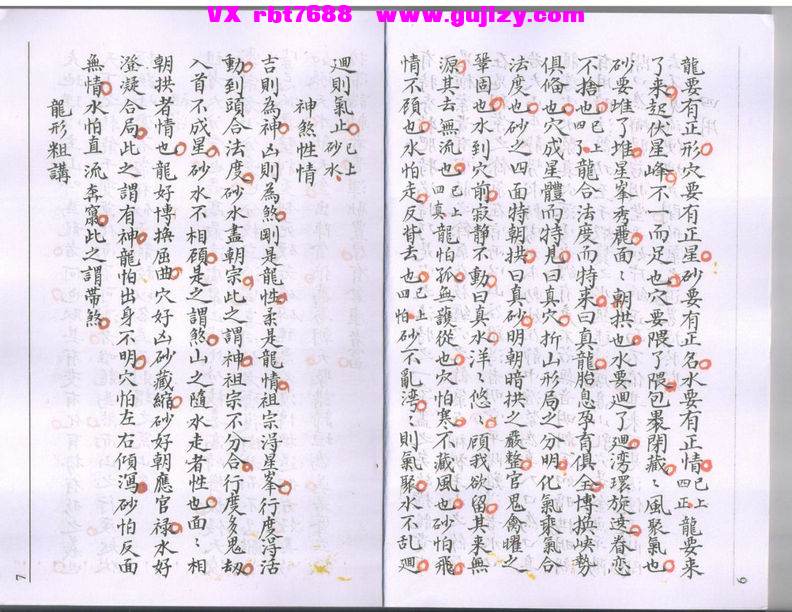 VX rbt7688 www.gujizy.com
龍要有正形穴要有正星砂要有正名水要有正情已上四正龍要来
了来起伏星峰不一而足也穴要隈了隈包裹閉藏〻風聚氣也
砂要堆了堆星峯秀麗面〻朝拱也水要廻了廻湾環旋过眷恋
不捨也已上四了龍合法度而特来曰真龍胎息孕育俱全博換峽勢
俱俻也穴成星體而特見曰真穴折山形局之分明化氣爽氣合
法度也砂之四面特朝拱曰真砂明朝暗拱之嚴整官鬼禽曜之
鞏固也水到穴前寂静不動曰真水洋〻悠〻顧我欲留其来無
源其去無流也已上四真龍怕孤無護從也穴怕寒不藏風也砂怕飛
情不顧也水怕走反背去也已上四怕砂不亂湾〻則氣聚水不乱廻
6
廻則氣止已上砂水
神煞性情
吉則為神凶則為煞剛是龍性柔是龍情祖宗淂星峯行度淂活
動到頭合法度砂水盡朝宗此之謂神祖宗不分合行度多鬼劫
入首不成星砂水不相顧是之謂煞山之隨水走者性也面〻相
朝拱者情也龍好博换屈曲穴好凶砂藏縮砂好朝應官禄水好
澄凝合局此之謂有神龍怕出身不明穴怕左右傾瀉砂怕反面
無情水怕直流奔竄此之謂带煞
龍形粗講
7